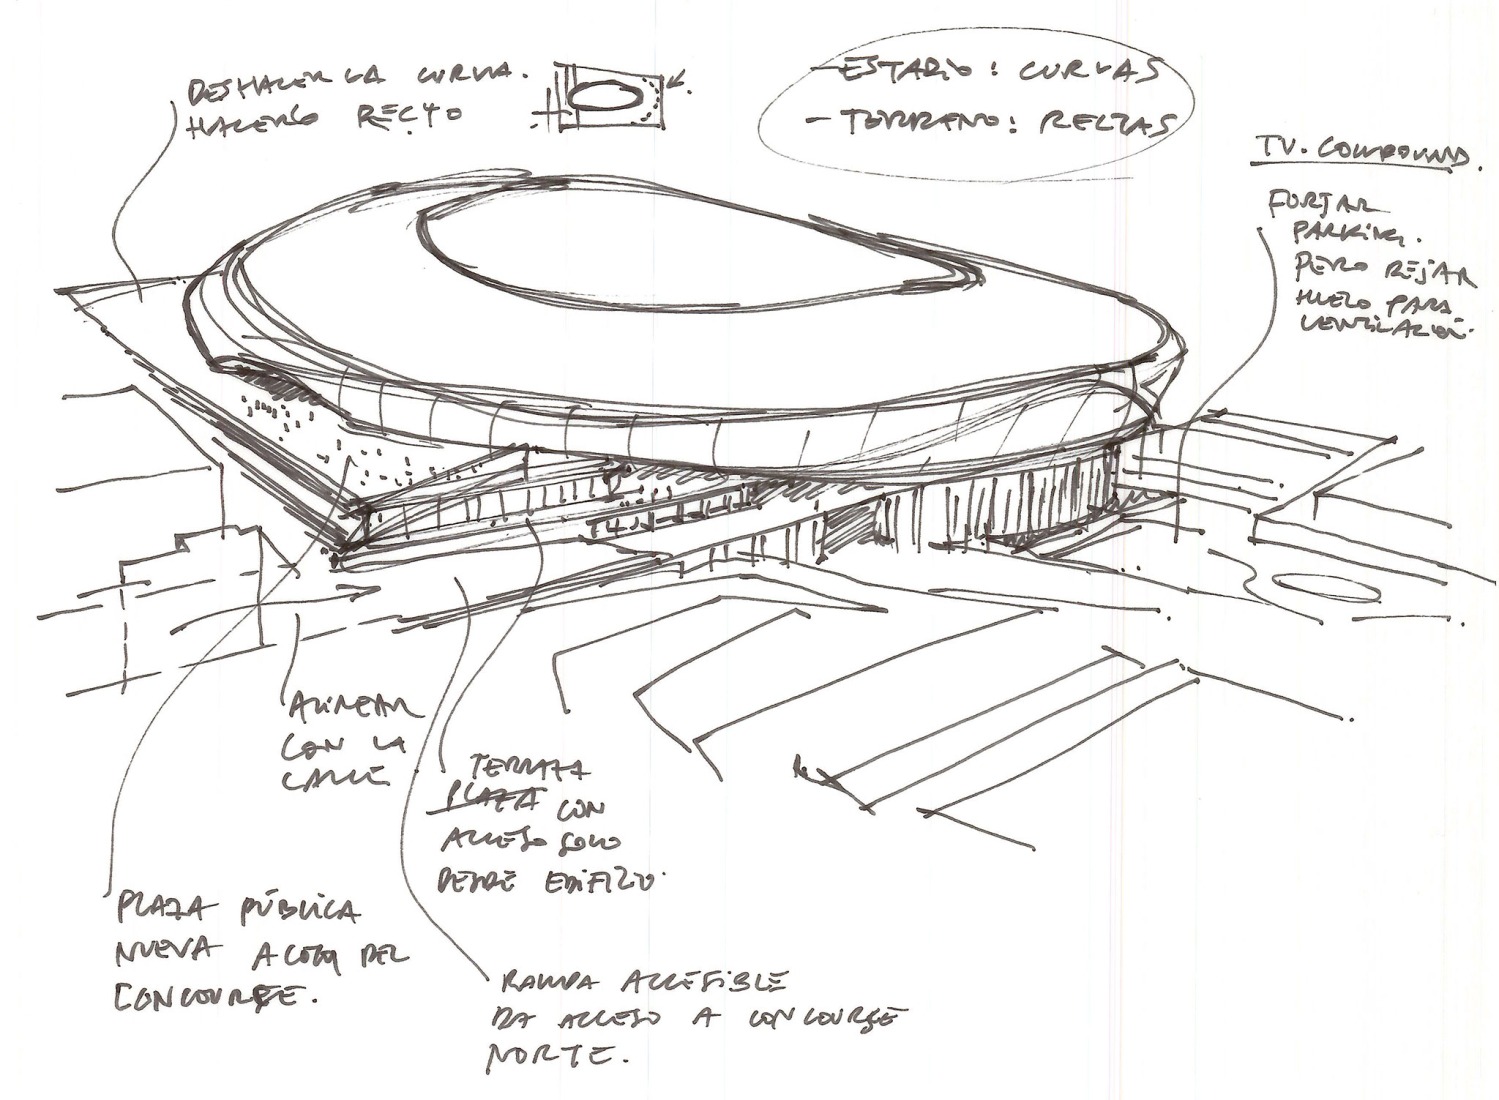 DESHACER LA CURVA.
HACERLO RECTO
- ESTADIO: CURVAS
- TERRENO: RECTAS
TV. COMPOUND.
FORJAR
PARKING.
PERO DEJAR
HUECO PARA
VENTILACIÓN.
ALINEAR
CON LA
CALLE
TERRAZA
PLAZA CON
ACCESO SOLO
DESDE EDIFICIO.
PLAZA PÚBLICA
NUEVA A COTA DEL
CONCOURSE.
RAMPA ACCESIBLE
DA ACCESO A CONCOURSE
NORTE.